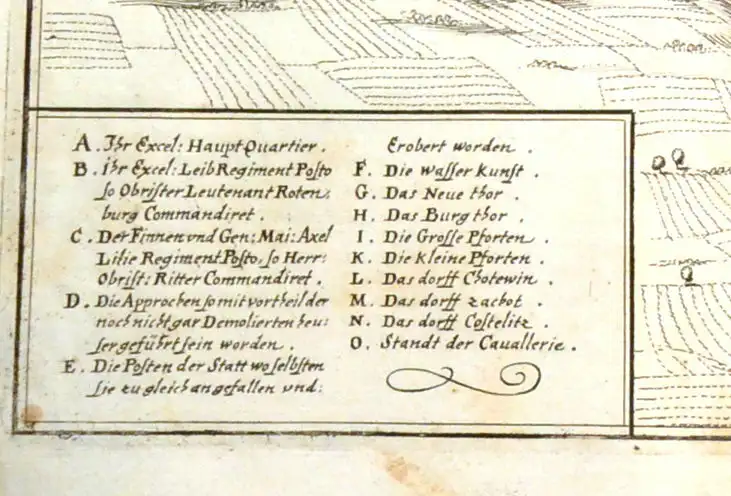 A. Ihr Excel: Haupt Quartier.
B. ihr Excel: Leib Regiment Posto
so Obrister Leutenant Roten:
burg Commandiret.
C. Der Finnen vnd Gen: Mai: Axel
Lilie Regiment Posto, so Herr:
Obrist: Ritter Commandiret.
D. Die Approchen so mit vortheil der
noch nicht gar Demolierten heu:
ser geführt sein worden.
E. Die Posten der Statt woselbsten
sie zu gleich angefallen vnd:
Erobert worden.
F. Die Wasser Kunst.
G. Das Neue thor.
H. Das Burg thor.
I. Die Grosse Pforten.
K. Die Kleine Pforten.
L. Das dorff Chotewin.
M. Das dorff zachot.
N. Das dorff Costelitz.
O. Standt der Cauallerie.